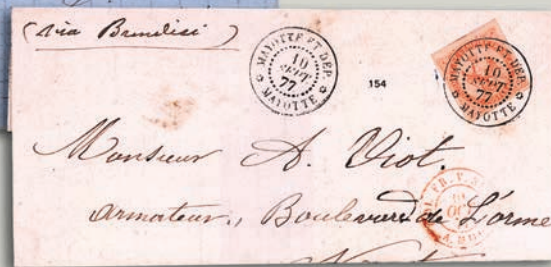 (via Brindisi)
MAYOTTE ET DEP.
10
SEPT.
77
MAYOTTE
154
MAYOTTE ET DEP.
10
SEPT.
77
MAYOTTE
Monsieur A. Viot.
armateur., Boulevard de L'orme